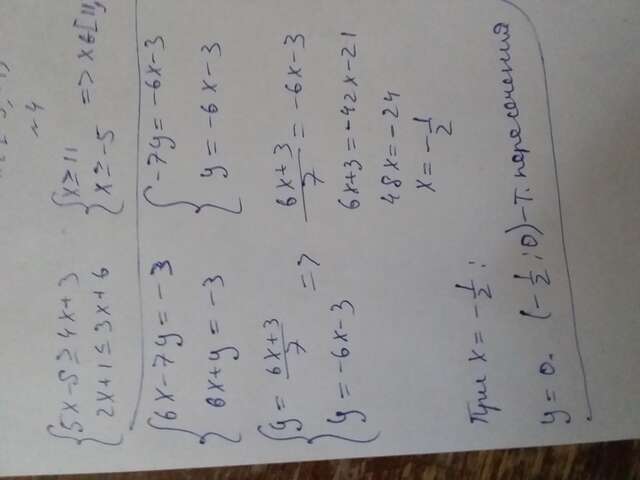 №4
{5x-8≥4x+3
{2x+1≤3x+6
{x≥11
{x≥-5
=> x∈[11;
{6x-7y=-3
{6x+y=-3
{-7y=-6x-3
{y=-6x-3
{y=\frac{6x+3}{7}
{y=-6x-3
=>
\frac{6x+3}{7}=-6x-3
6x+3=-42x-21
48x=-24
x=-\frac{1}{2}
При x=-\frac{1}{2}:
y=0. (-\frac{1}{2};0)-т. пересечения